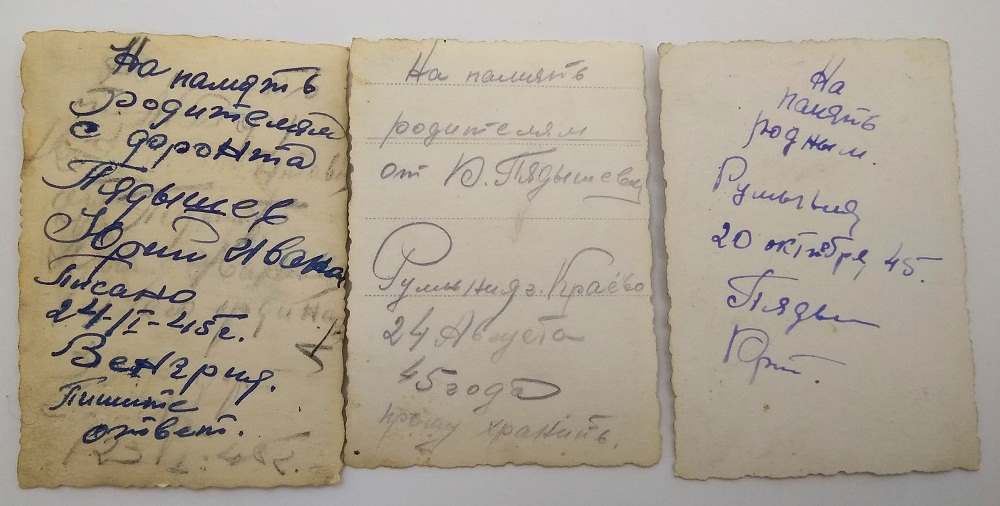 На память
родителям
с фронта
Пядышев
Юрий Ивано
Писано
24/I-45г.
Венгрия.
Пишите
ответ.
На память
родителям
от Ю. Пядышева
Румыния г. Краёво
24 Августа
45 года
прошу хранить.
На
память
родным.
Румыния
20 октября 45
Пяды
Юрий.